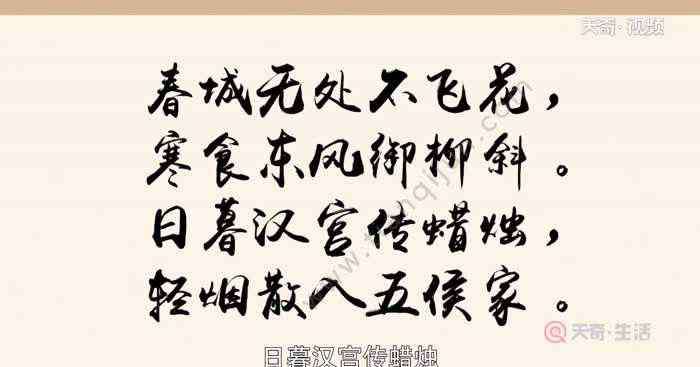 天奇·视频
春城无处不飞花，
寒食东风御柳斜。
日暮汉宫传蜡烛，
轻烟散入五侯家。
天奇·生活
日暮汉宫传蜡烛